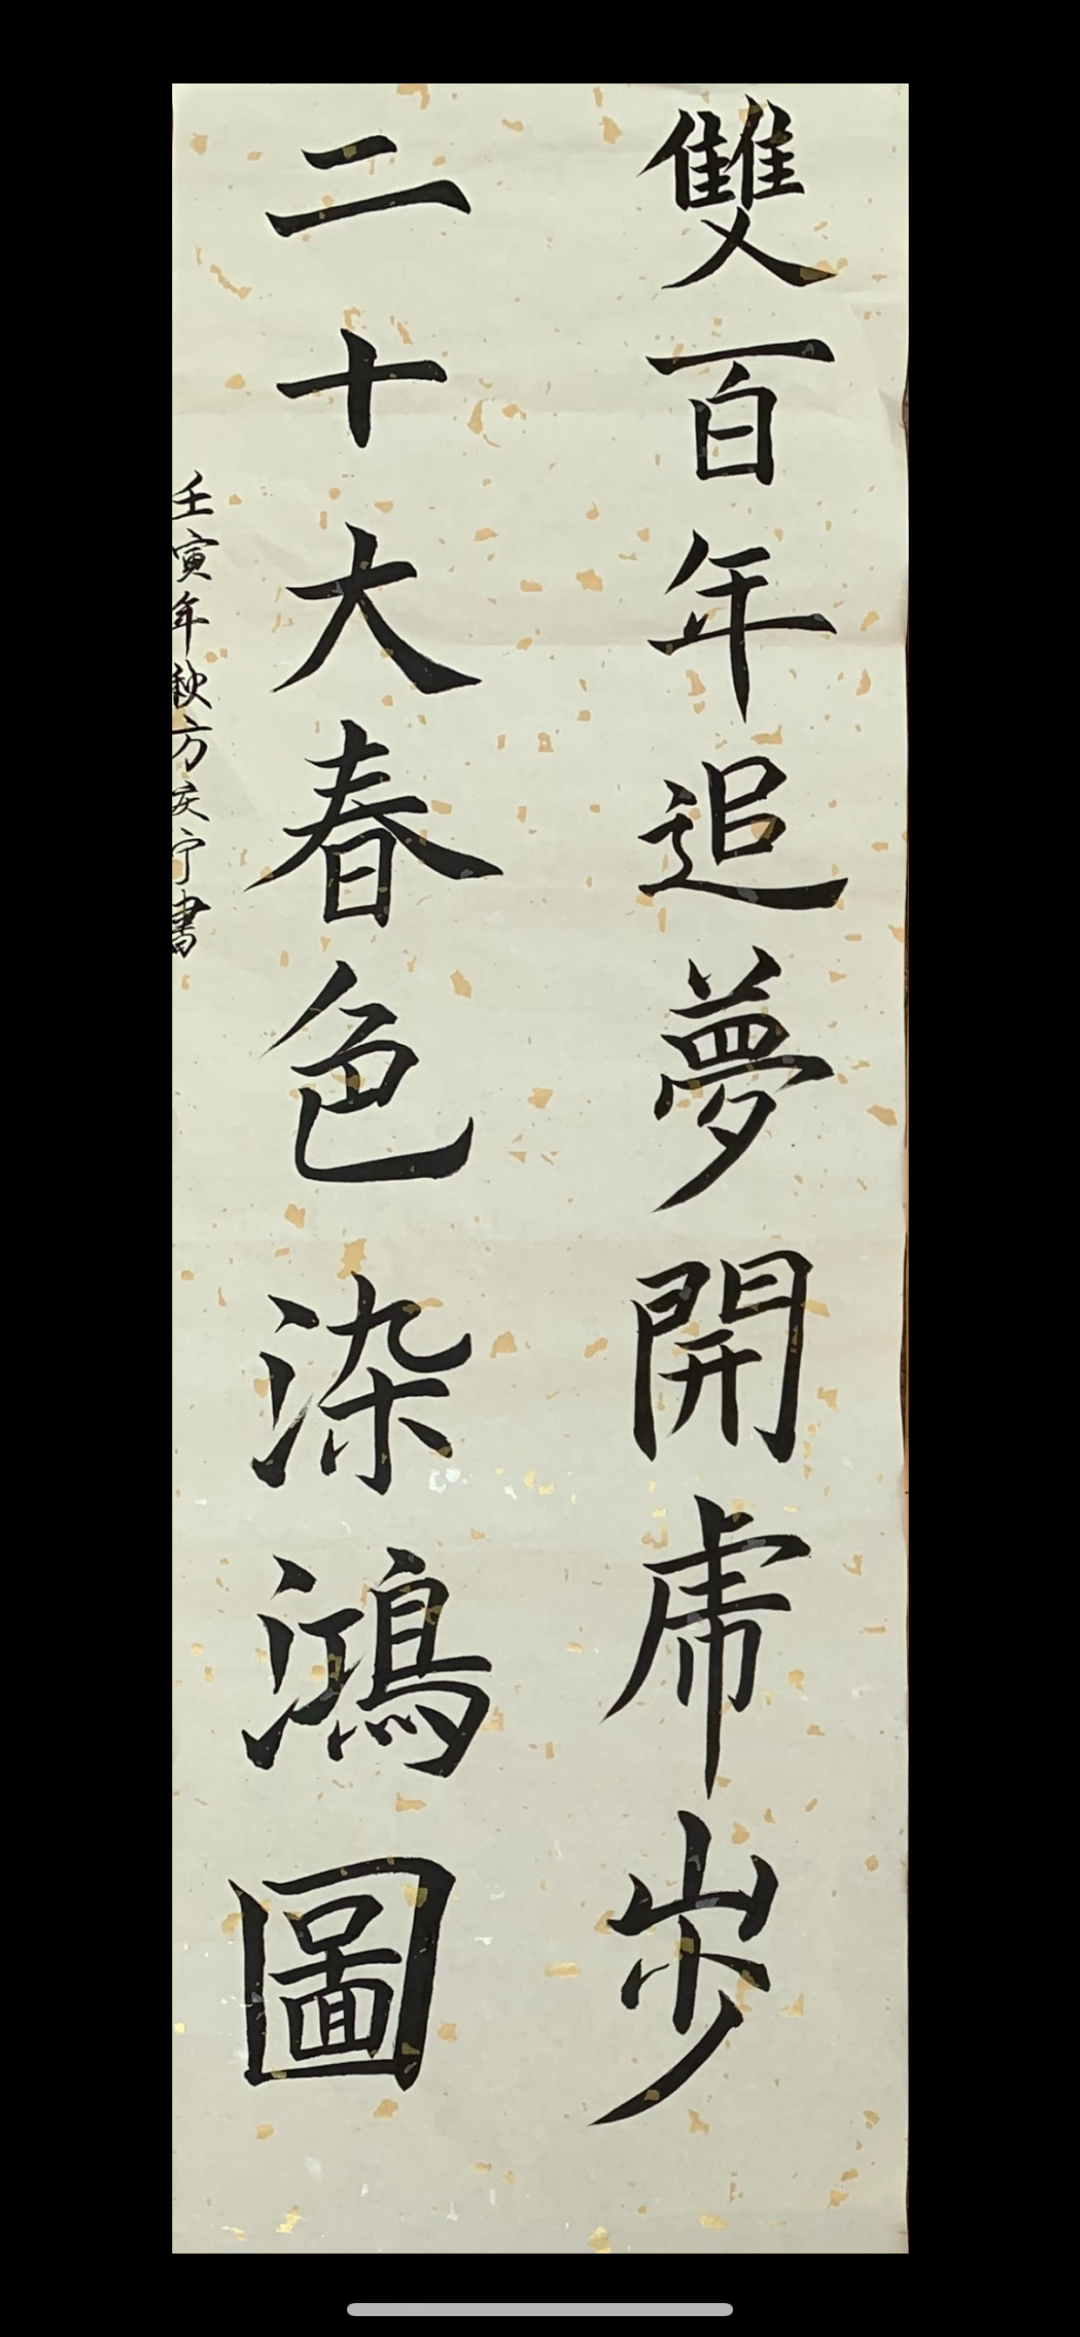 雙百年追夢開虎步
二十大春色染鴻圖
壬寅年秋方亥宁書